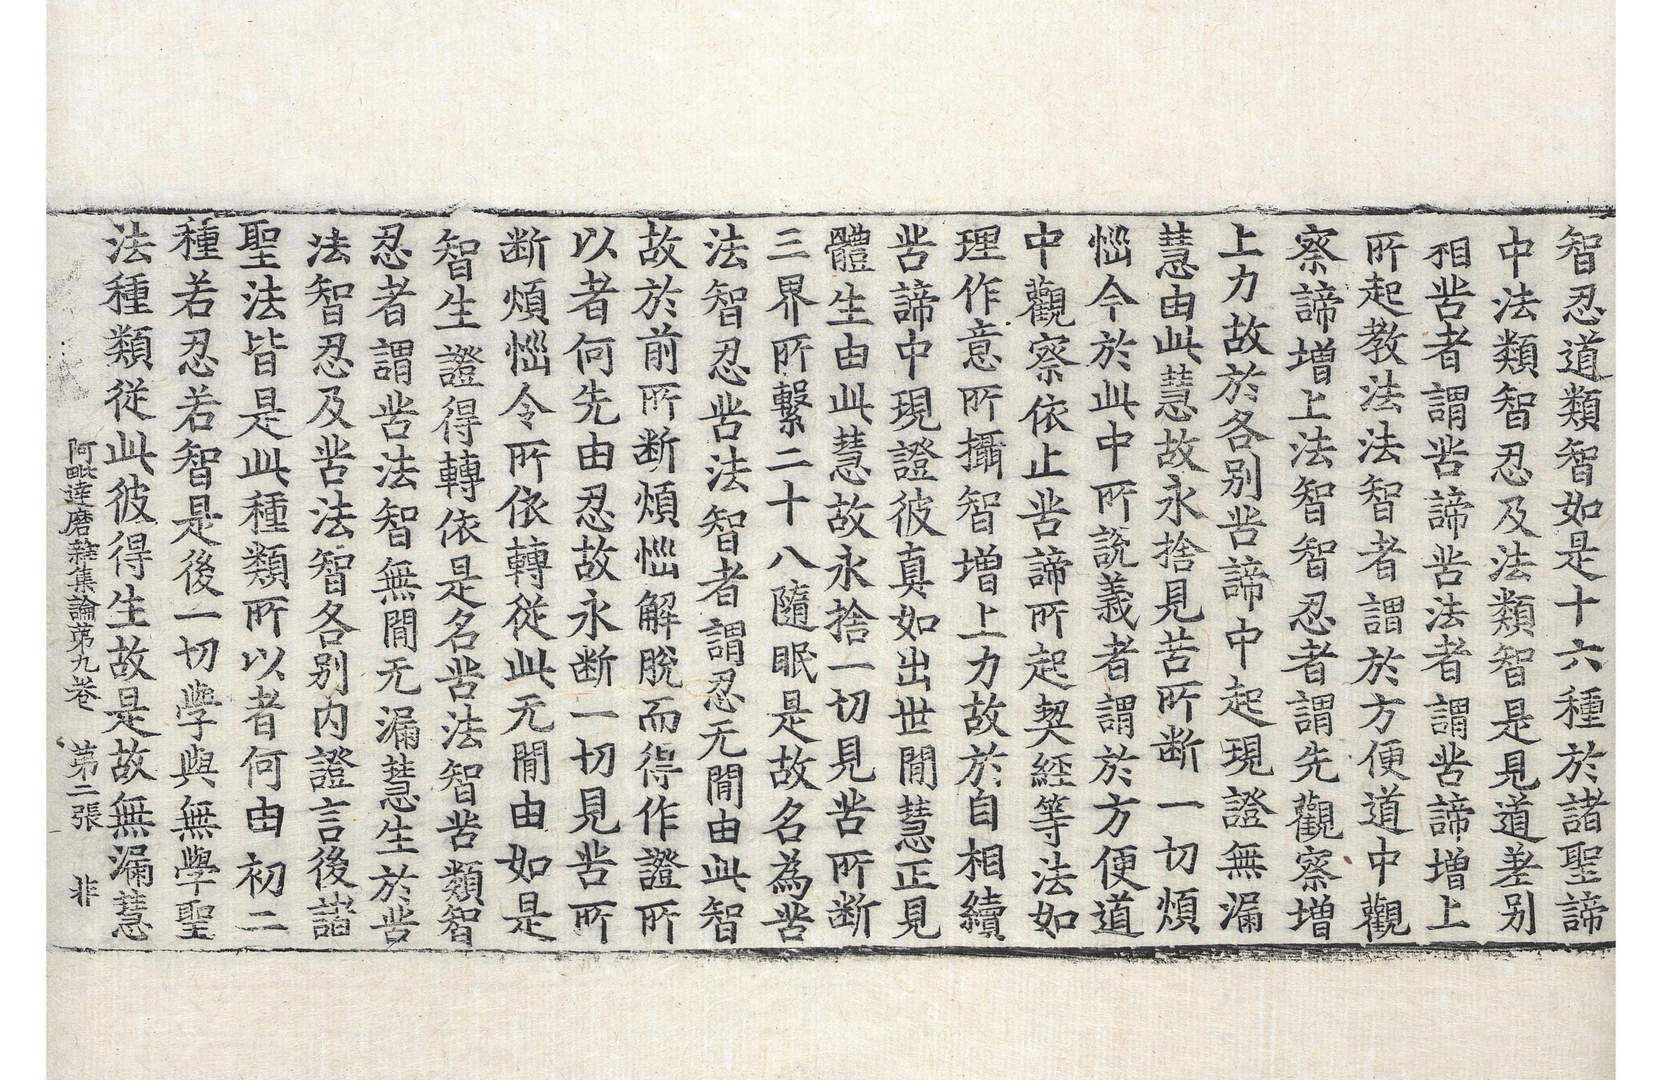 智忍道類智如是十六種於諸聖諦
中法類智忍及法類智是見道差别
相苦者謂苦諦苦法者謂苦諦增上
所起教法法智者謂於方便道中觀
察諦增上法智智忍者謂先觀察增
上力故於各别苦諦中起現證無漏
慧由此慧故永捨見苦所断一切煩
惱今於此中所說義者謂於方便道
中觀察依止苦諦所起契經等法如
理作意所攝智增上力故於自相續
苦諦中現證彼真如出世間慧正見
體生由此慧故永捨一切見苦所断
三界所繫二十八隨眠是故名為苦
法智忍苦法智者謂忍无間由此智
故於前所断煩惱解脫而得作證所
以者何先由忍故永断一切見苦所
断煩惱令所依轉從此无間由如是
智生證得轉依是名苦法智苦類智
忍者謂苦法智無間无漏慧生於苦
法智忍及苦法智各别内證言後諸
聖法皆是此種類所以者何由初二
種若忍若智是後一切學與無學聖
法種類從此彼得生故是故無漏慧
阿毗達磨雜集論第九卷 第二張 非